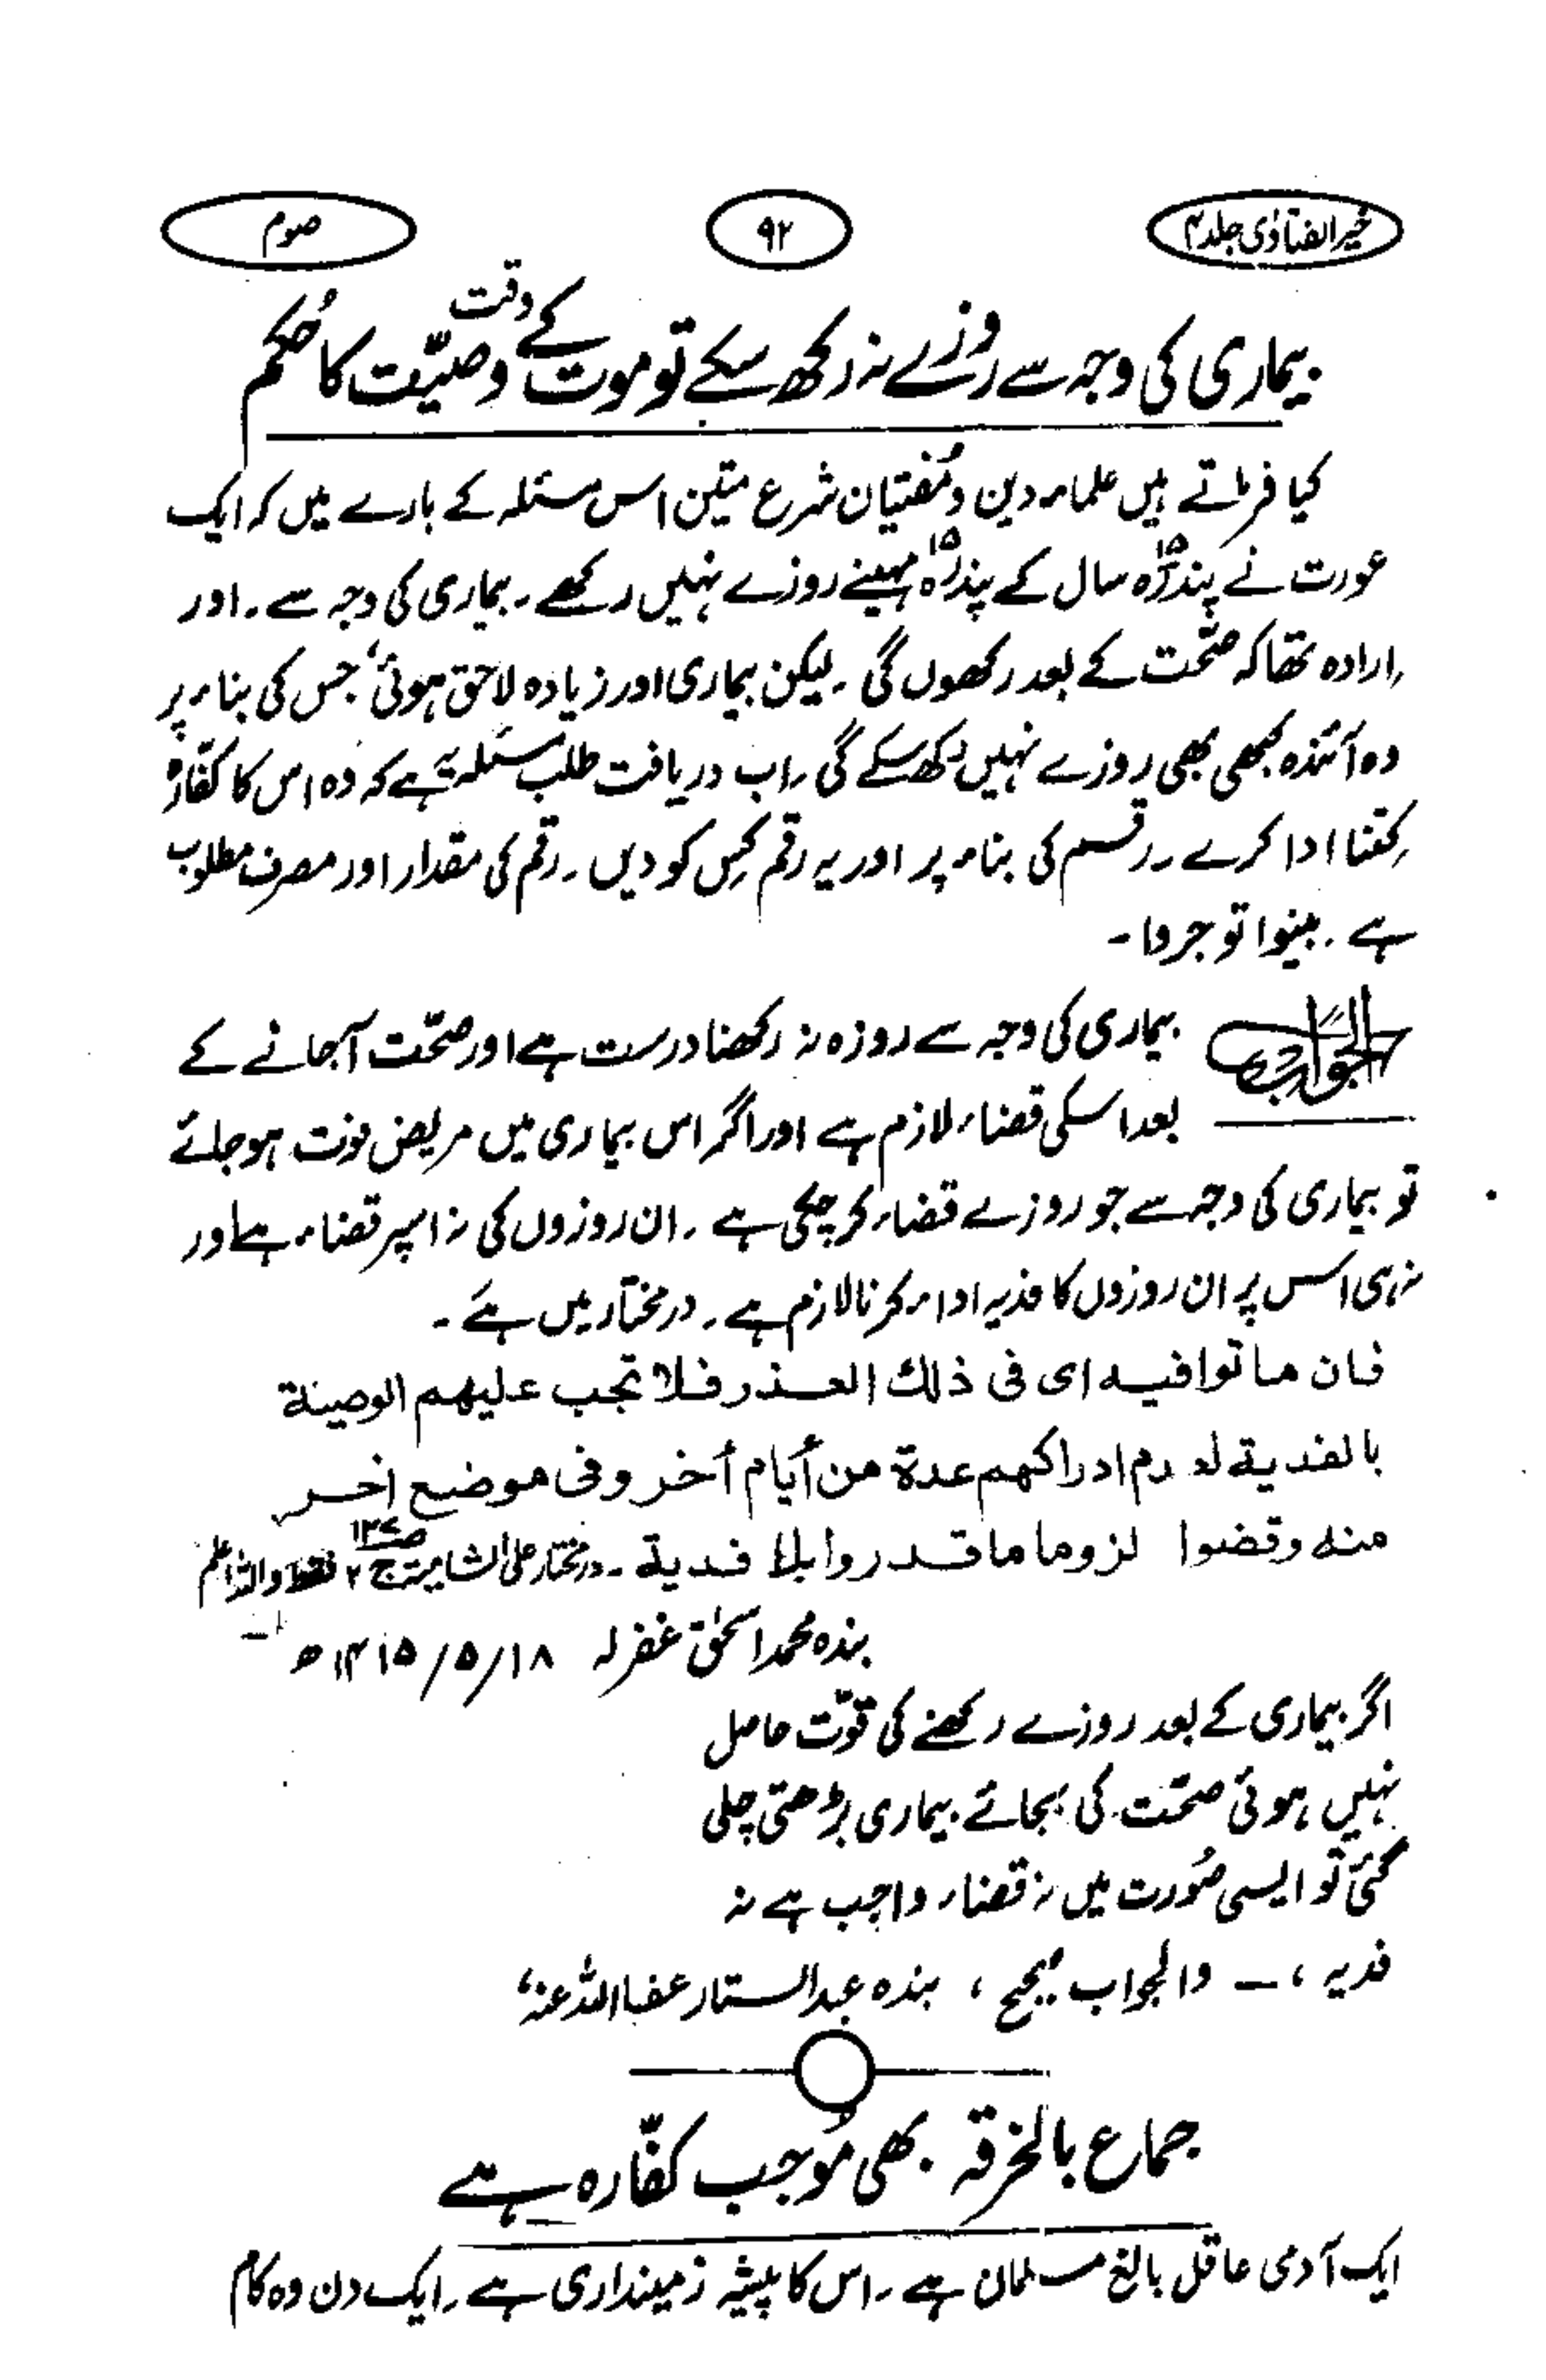 خیر الفتاوٰی جلد ۴
۹۲
صوم
بیماری کی وجہ سے روزے نہ رکھ سکے تو موت کے وقت وصیّت کا حُکم
کیا فرماتے ہیں علماء دین و مُفتیان شرع متین اس مسئلہ کے بارے میں کہ ایک
عورت نے پندرہ ۱۵ سال کے پندرہ ۱۵ مہینے روزے نہیں رکھے۔ بیماری کی وجہ سے۔ اور
ارادہ تھا کہ صحّت کے بعد رکھوں گی۔ لیکن بیماری اور زیادہ لاحق ہوئی، جس کی بناء پر
وہ آئندہ کبھی بھی روزے نہیں رکھ سکے گی۔ اب دریافت طلب مسئلہ یہ ہے کہ وہ اس کا کفّارہ
کِتنا ادا کرے۔ رقم کی بناء پر اور یہ رقم کِس کو دیں۔ رقم کی مقدار اور مصرف مطلوب
ہے۔ بینوا توجروا۔
الجواب
بیماری کی وجہ سے روزہ نہ رکھنا درست ہے اور صحّت آجانے کے
بعد اسکی قضاء لازم ہے اور اگر اس بیماری میں مریض فوت ہو جائے
تو بیماری کی وجہ سے جو روزے قضاء کر چکی ہے۔ ان روزوں کی نہ اسپر قضاء ہے اور
نہ ہی اس پر ان روزوں کا فدیہ اداء کرنا لازم ہے۔ درمختار میں ہے۔
فان ماتوا فیہ ای فی ذلك العذر فلا تجب علیهم الوصیة
بالفدیة لعدم ادراکهم عدة من أیام أخر وفی موضع اخر
منه وقضوا لزوما ما قدروا بلا فدیة۔ درمختار علی الشامیة ج ۲ فقط واللہ اعلم
بندہ محمد اسحٰق غفرلہ ۱۸/۵/۱۴۱۵ھ
اگر بیماری کے بعد روزے رکھنے کی قوّت حاصل
نہیں ہوئی صحّت کی بجائے بیماری بڑھتی چلی
گئی تو ایسی صُورت میں نہ قضاء واجب ہے نہ
فدیہ، ــ والجواب صحیح، بندہ عبدالستار عفا اللہ عنہ،
جماع بالخرقہ بھی مُوجب کفّارہ ہے
ایک آدمی عاقل بالغ مسلمان ہے۔ اس کا پیشہ زمینداری ہے۔ ایک دن وہ کام